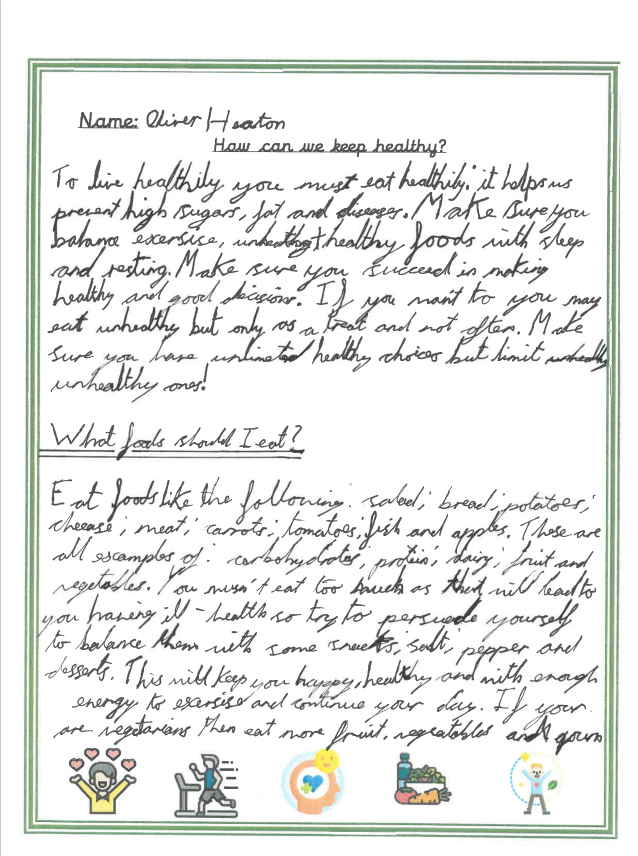 Name: Oliver Heaton
How can we keep healthy?
To live healthily you must eat healthily; it helps us
prevent high sugars, fat and diseases. Make sure you
balance exersise, healthy foods with sleep
and resting. Make sure you succeed in making
healthy and good decisions. If you want to you may
eat unhealthy but only as a treat and not often. Make
sure you have unlimeted healthy choices but limit
unhealthy ones!
What foods should I eat?
Eat foods like the following: salad; bread; potatoes;
cheease; meat; carrots; tomatoes, fish and apples. These are
all escamples of: carbohydrates, protein; dairy; fruit and
vegetables. You musn't eat too much as that will lead to
you having ill-health so try to persuade yourself
to balance them with some sneets; salt; pepper and
desserts. This will keep you happy, healthy and with enough
energy to exersise and continue your day. If your
are vegetarians then eat more fruit, vegeatables and